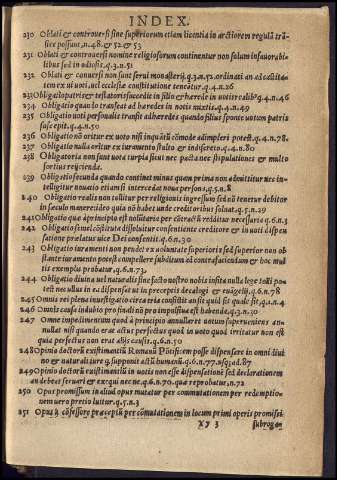 INDEX.
230 Oblati & controuersi sine superiorum etiam licentia in arctiorem regulā trā-
sire possunt, n.48. & 52 & 53
231 Oblati & conuersi nomine religiosorum continentur non solum in fauorabi-
libus sed in odiosis q.3.n.51
232 Oblati & conuersi non sunt serui monasterij. q.3.n.52. ordinati an ad
tem ex ui uoti, uel ecclesiæ constitutione teneātur. q.4.n.26
233 Obligatio patris & testatoris succedit in filio & hærede in uotis realib⁹ q.4.n.46
234 Obligatio quando transeat ad hæredes in uotis mixtis. q.4.n.49
235 Obligatio uoti personalis transit ad hæredes quando filius sponte uotum patris
suscepit. q.4.n.50
236 Obligatio nō oritur ex uoto nisi inquātū cōmode adimpleri potest. q.4.n.78.
237 Obligatio nulla oritur ex iuramento stulto & indiscreto. q.4.n.80
238 Obligatoria non sunt uota turpia sicut nec pacta nec stipulationes & multo
fortius reijcienda.
239 Obligatio secunda quando continet minus quam prima non admittitur nec in-
telligitur nouatio etiam si intercedat noua persona. q.5.n.8
240 Obligatio realis non tollitur per religionis ingressum sed nō tenetur debitor
in sæculo manere si deo quia nō habet unde creditoribus soluat. q.5.n.29
241 Obligatio quæ à principio est uoluntaria per cōtractū redditur necessaria q.6.n.3
242 Obligatio semel cōstituta dissoluitur consentiente creditore & in uoti dispen-
satione prælatus uice Dei consentit. q.6.n.30
243 Obligatio iuramenti non pendet ex uoluntate superioris sed superior non ob-
stante iuramento potest compellere subditum ad contrafaciendum & hoc mul-
tis exemplis probatur. q.6.n.73.
244 Obligatio diuina uel naturalis sine facto nostro nobis insita nulla lege tolli po-
test nec ullus in ea dispensat ut in præceptis decalogi & euāgelij. q.6.n.78
245 Omnis rei plena inuestigatio circa tria consistit an sit quid sit quale sit. q.1.n.4
246 Omnis casus in dubio pro fundi nō pro impulsiua est habenda. q.3.n.30
247 Omne impedimentum quod à principio annullaret uotum superueniens an-
nullat nisi quando erat actus perfectus quod in uoto quod irritatur non est
quia perfectus non erat absq́; causis. q.6.n.50
248 Opinio doctorū existimantiū Romanū Pōtificem posse dispensare in omni diui-
no & naturali iure q̄ supponit actū humanū. q.6.n.77. usq; ad.87
249 Opinio doctorū existimantiū in uotis non esse dispensationē sed declarationem
an debeat seruari & ex qui nec ne. q.6.n.70. quæ reprobatur, n.72
250 Opus promissum in aliud opus mutatur per commutationem per redemptio-
nem uero pretio luitur. q.5.n.3
251 Opus q̄ cōfessore præceptū per cōmutationem in locum primi operis promissi
Yy 3 subrogan